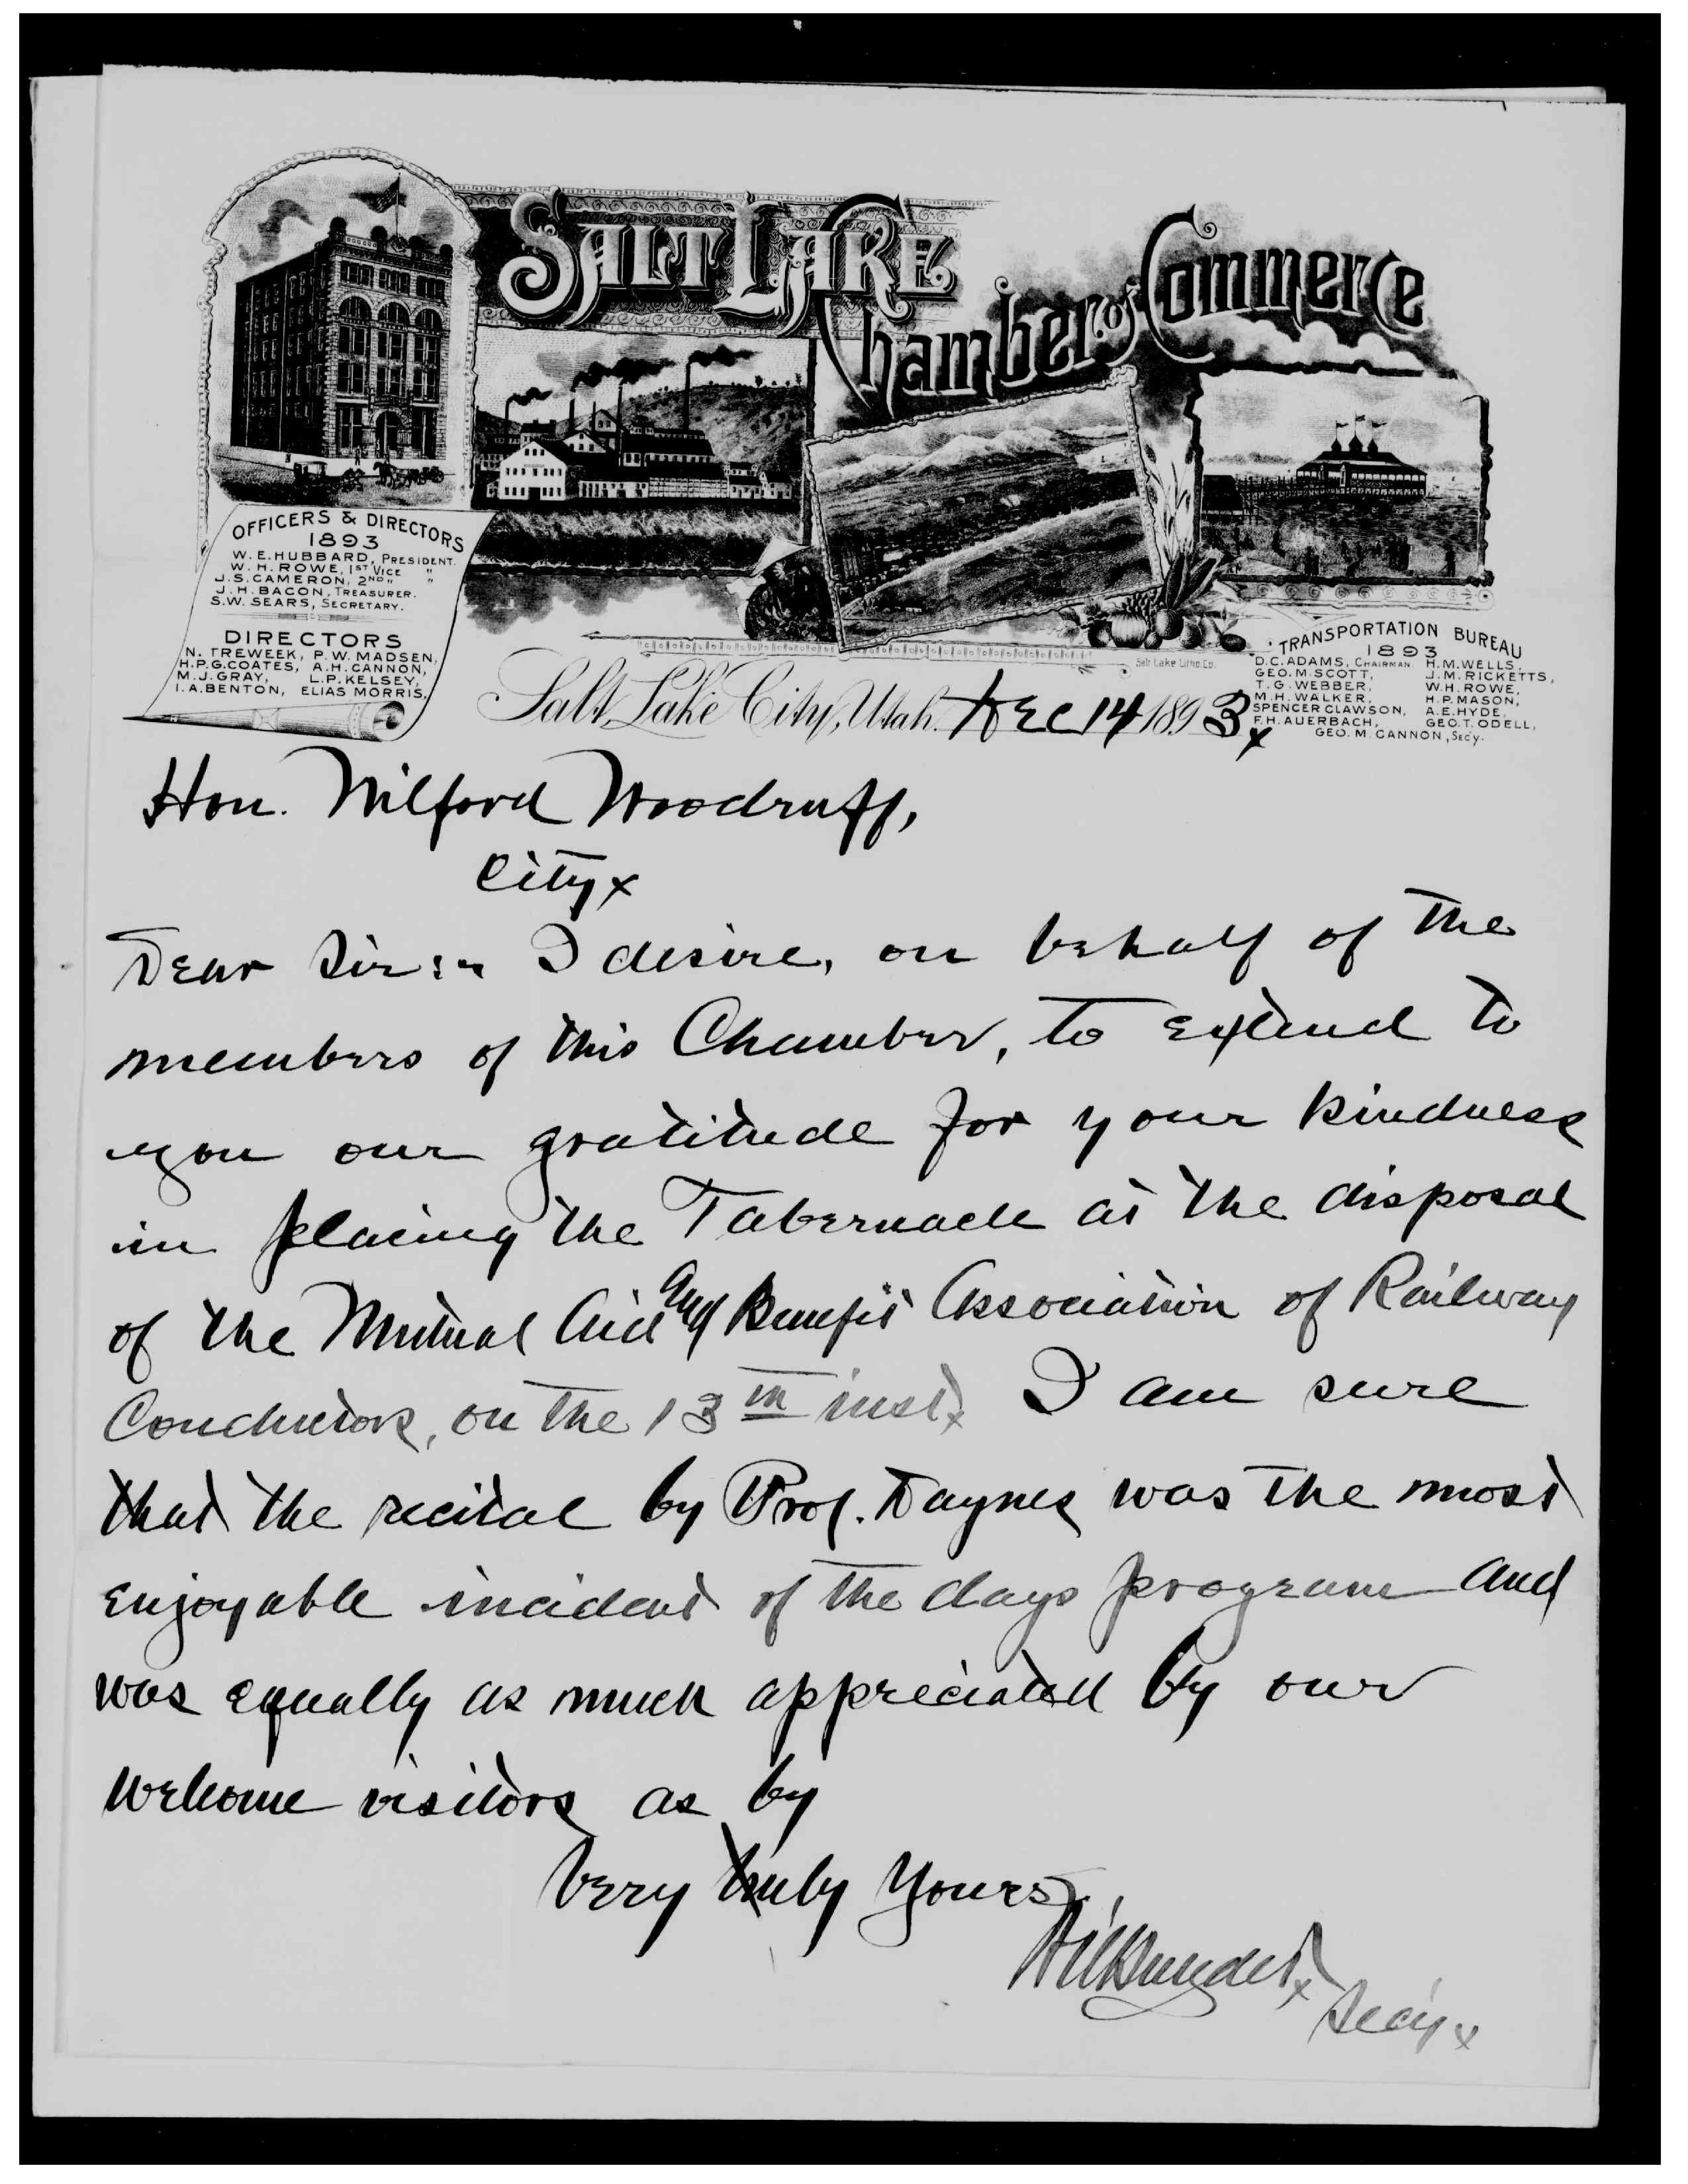 SALT LAKE
Chamber of Commerce
OFFICERS & DIRECTORS
1893
W. E. HUBBARD, PRESIDENT.
W. H. ROWE, 1ST VICE "
J. S. CAMERON, 2ND " "
J. H. BACON, TREASURER.
S. W. SEARS, SECRETARY.
DIRECTORS
N. TREWEEK, P. W. MADSEN,
H. P. G. COATES, A. H. CANNON,
M. J. GRAY, L. P. KELSEY,
I. A. BENTON, ELIAS MORRIS,
Salt Lake Litho. Co.
TRANSPORTATION BUREAU
1893
D. C. ADAMS, CHAIRMAN. H. M. WELLS,
GEO. M. SCOTT, J. M. RICKETTS,
T. G. WEBBER, W. H. ROWE,
M. H. WALKER, H. P. MASON,
SPENCER CLAWSON, A. E. HYDE,
F. H. AUERBACH, GEO. T. ODELL,
GEO. M. CANNON, Sec'y.
Salt Lake City, Utah. Dec 14 1893x
Hon. Wilford Woodruff,
Cityx
Dear Sir:- I desire, on behalf of the
members of this Chamber, to extend to
you our gratitude for your kindness
in placing the Tabernacle at the disposal
of the Mutual Aid and Benefit Association of Railway
Conductors, on the 13th inst.x I am sure
that the recital by Prof. Daynes was the most
enjoyable incident of the days program and
was equally as much appreciated by our
welcome visitors as by
Very truly Yours,
Secyx